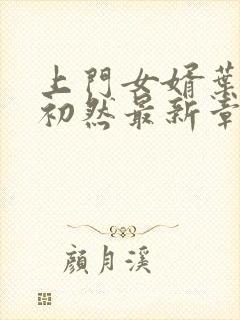 上門女婿葉
初然最新章
顔月溪